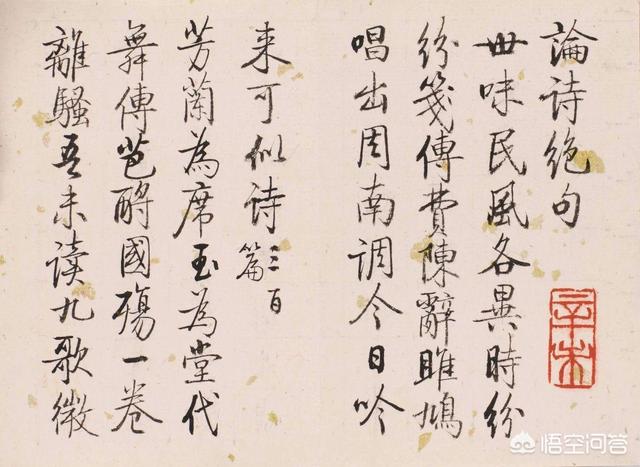 論詩絕句
世味民風各異時紛
紛箋傳費陳辭雎鳩
唱出周南調今日吟
来可似詩三百篇
芳蘭為席玉為堂代
舞傳芭酹國殤一卷
離騷吾未讀九歌微
辛未
悟空问答